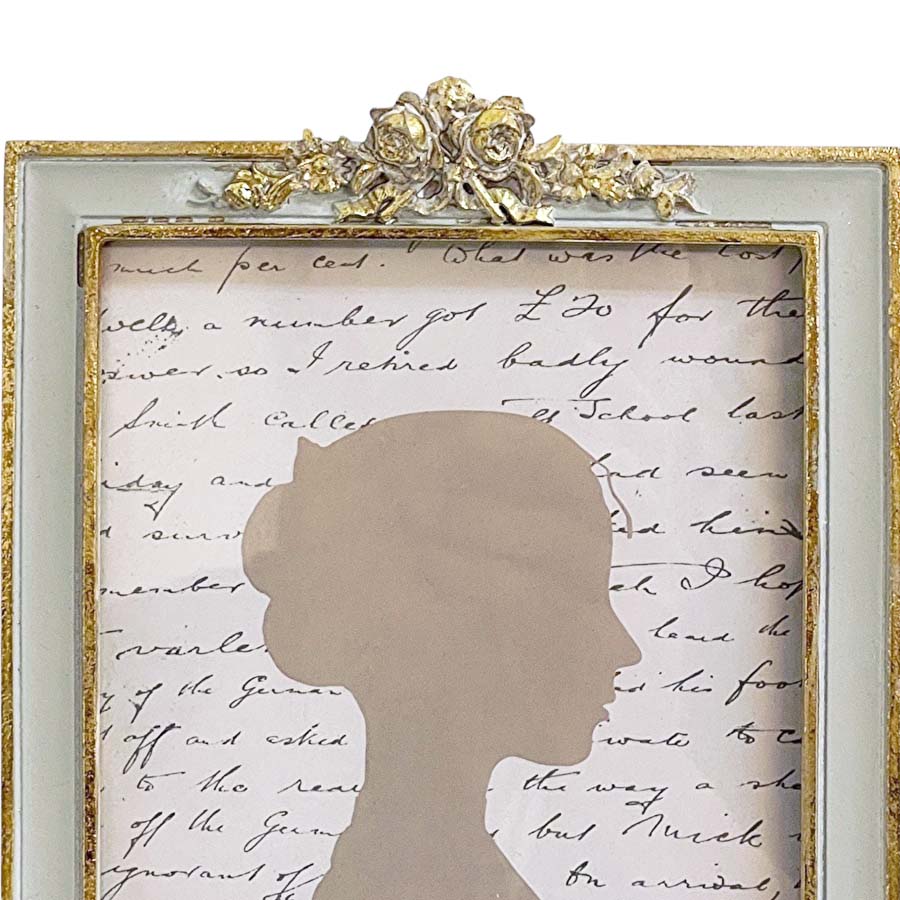 much per cent." What was the cost
well, a number got £20 for the
so I retired badly wound
Smith called School last
day and had seen
d surv ked him
member ch I hop
varle heard the
y of the German his foot
off and asked private to ca
to the rear the way a she
off the Germ but Mick
ignorant of On arrival,